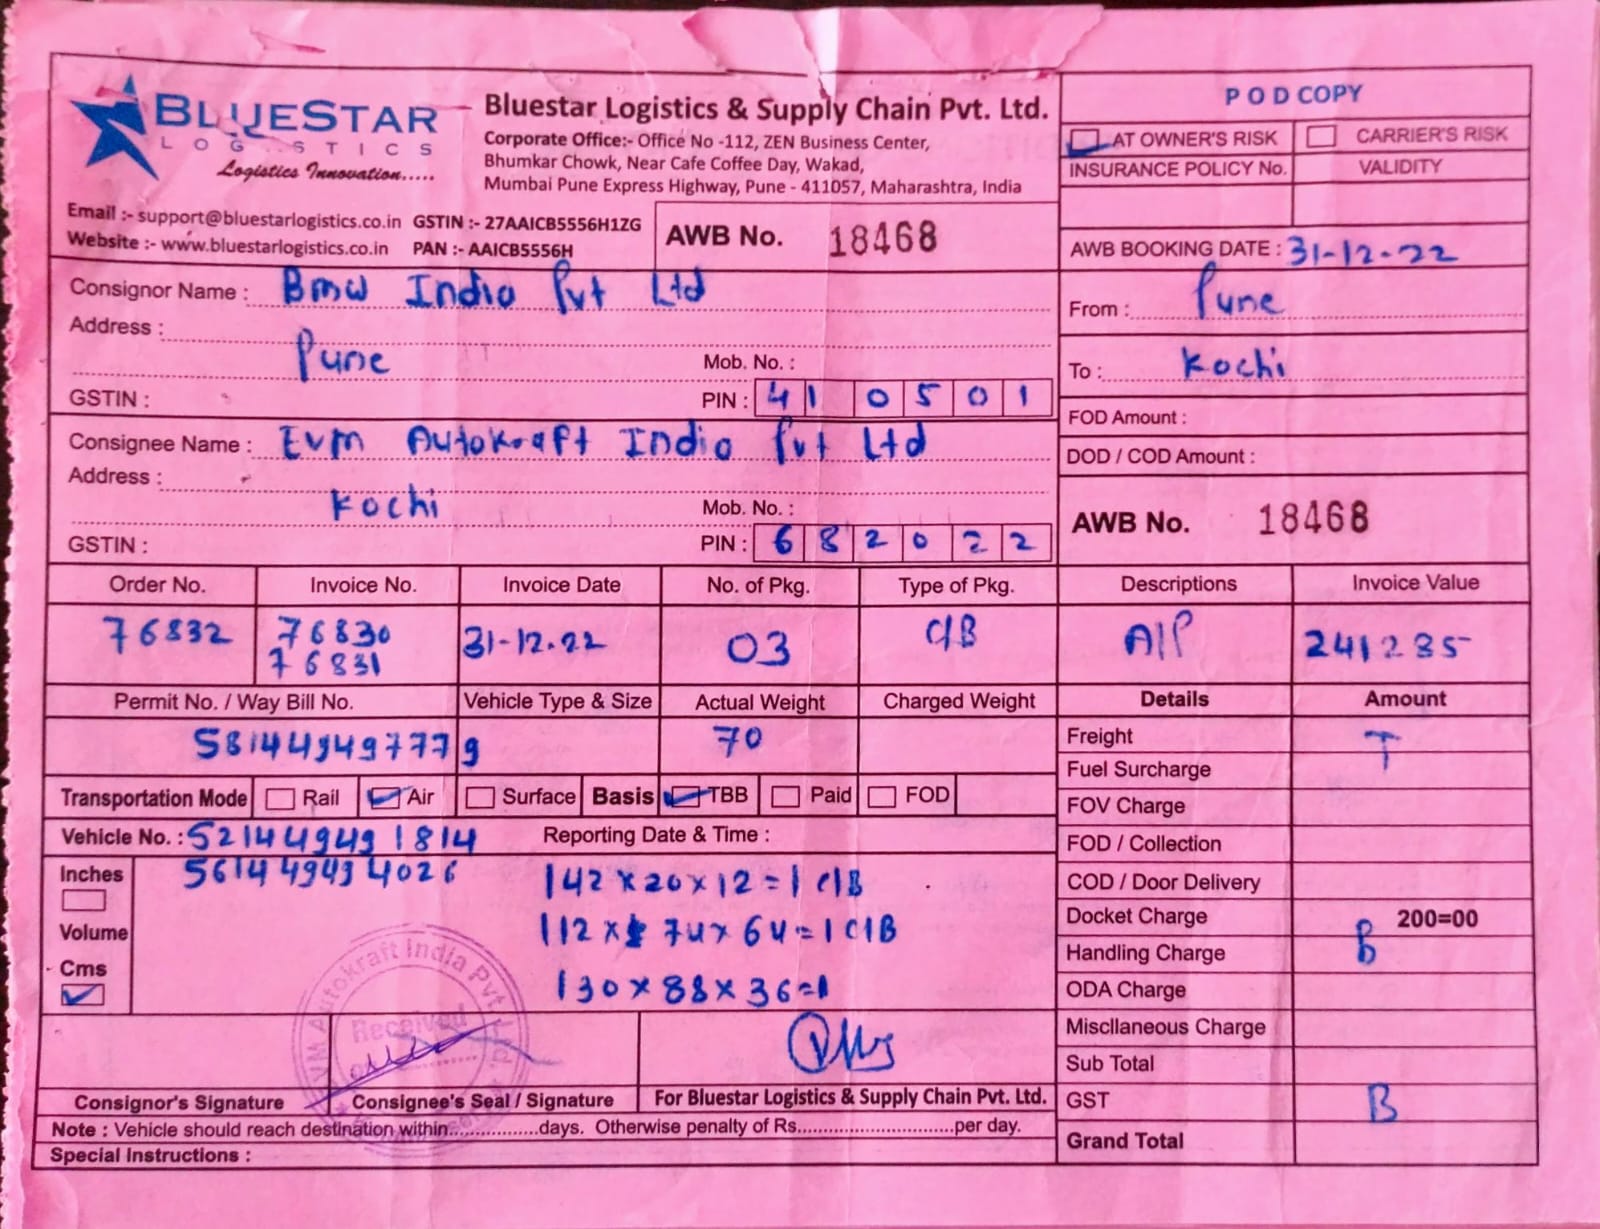 BLUESTAR
LOGISTICS
Logistics Innovation.....
Bluestar Logistics & Supply Chain Pvt. Ltd.
Corporate Office:- Office No -112, ZEN Business Center,
Bhumkar Chowk, Near Cafe Coffee Day, Wakad,
Mumbai Pune Express Highway, Pune - 411057, Maharashtra, India
Email :- support@bluestarlogistics.co.in GSTIN :- 27AAICB5556H1ZG
Website :- www.bluestarlogistics.co.in PAN :- AAICB5556H
AWB No. 18468
POD COPY
AT OWNER'S RISK CARRIER'S RISK
INSURANCE POLICY No. VALIDITY
AWB BOOKING DATE : 31-12-22
From : Pune
To : Kochi
FOD Amount :
DOD / COD Amount :
AWB No. 18468
Consignor Name : Bmw India Pvt Ltd
Address :
Pune Mob. No. :
GSTIN : PIN : 410501
Consignee Name : Evm Autokraft India Pvt Ltd
Address :
Kochi Mob. No. :
GSTIN : PIN : 682022
Order No. Invoice No. Invoice Date No. of Pkg. Type of Pkg. Descriptions Invoice Value
76832 76830 31-12-22 03 C/B A/P 241285
76831
Permit No. / Way Bill No. Vehicle Type & Size Actual Weight Charged Weight Details Amount
581449497779 70
Freight T
Fuel Surcharge
Transportation Mode Rail Air Surface Basis TBB Paid FOD
FOV Charge
Vehicle No. : 521449491814 Reporting Date & Time :
FOD / Collection
561449494026
Inches
142 x 20 x 12 = 1 C/B
COD / Door Delivery
Volume
112 x 74 x 64 = 1 C/B
Docket Charge 200=00
Handling Charge B
Cms
130 x 88 x 36 = 1
ODA Charge
Miscllaneous Charge
Sub Total
GST B
Grand Total
VM Autokraft India Pvt. Ltd.
Received
Consignor's Signature Consignee's Seal / Signature For Bluestar Logistics & Supply Chain Pvt. Ltd.
Note : Vehicle should reach destination within.................days. Otherwise penalty of Rs..............................per day.
Special Instructions :